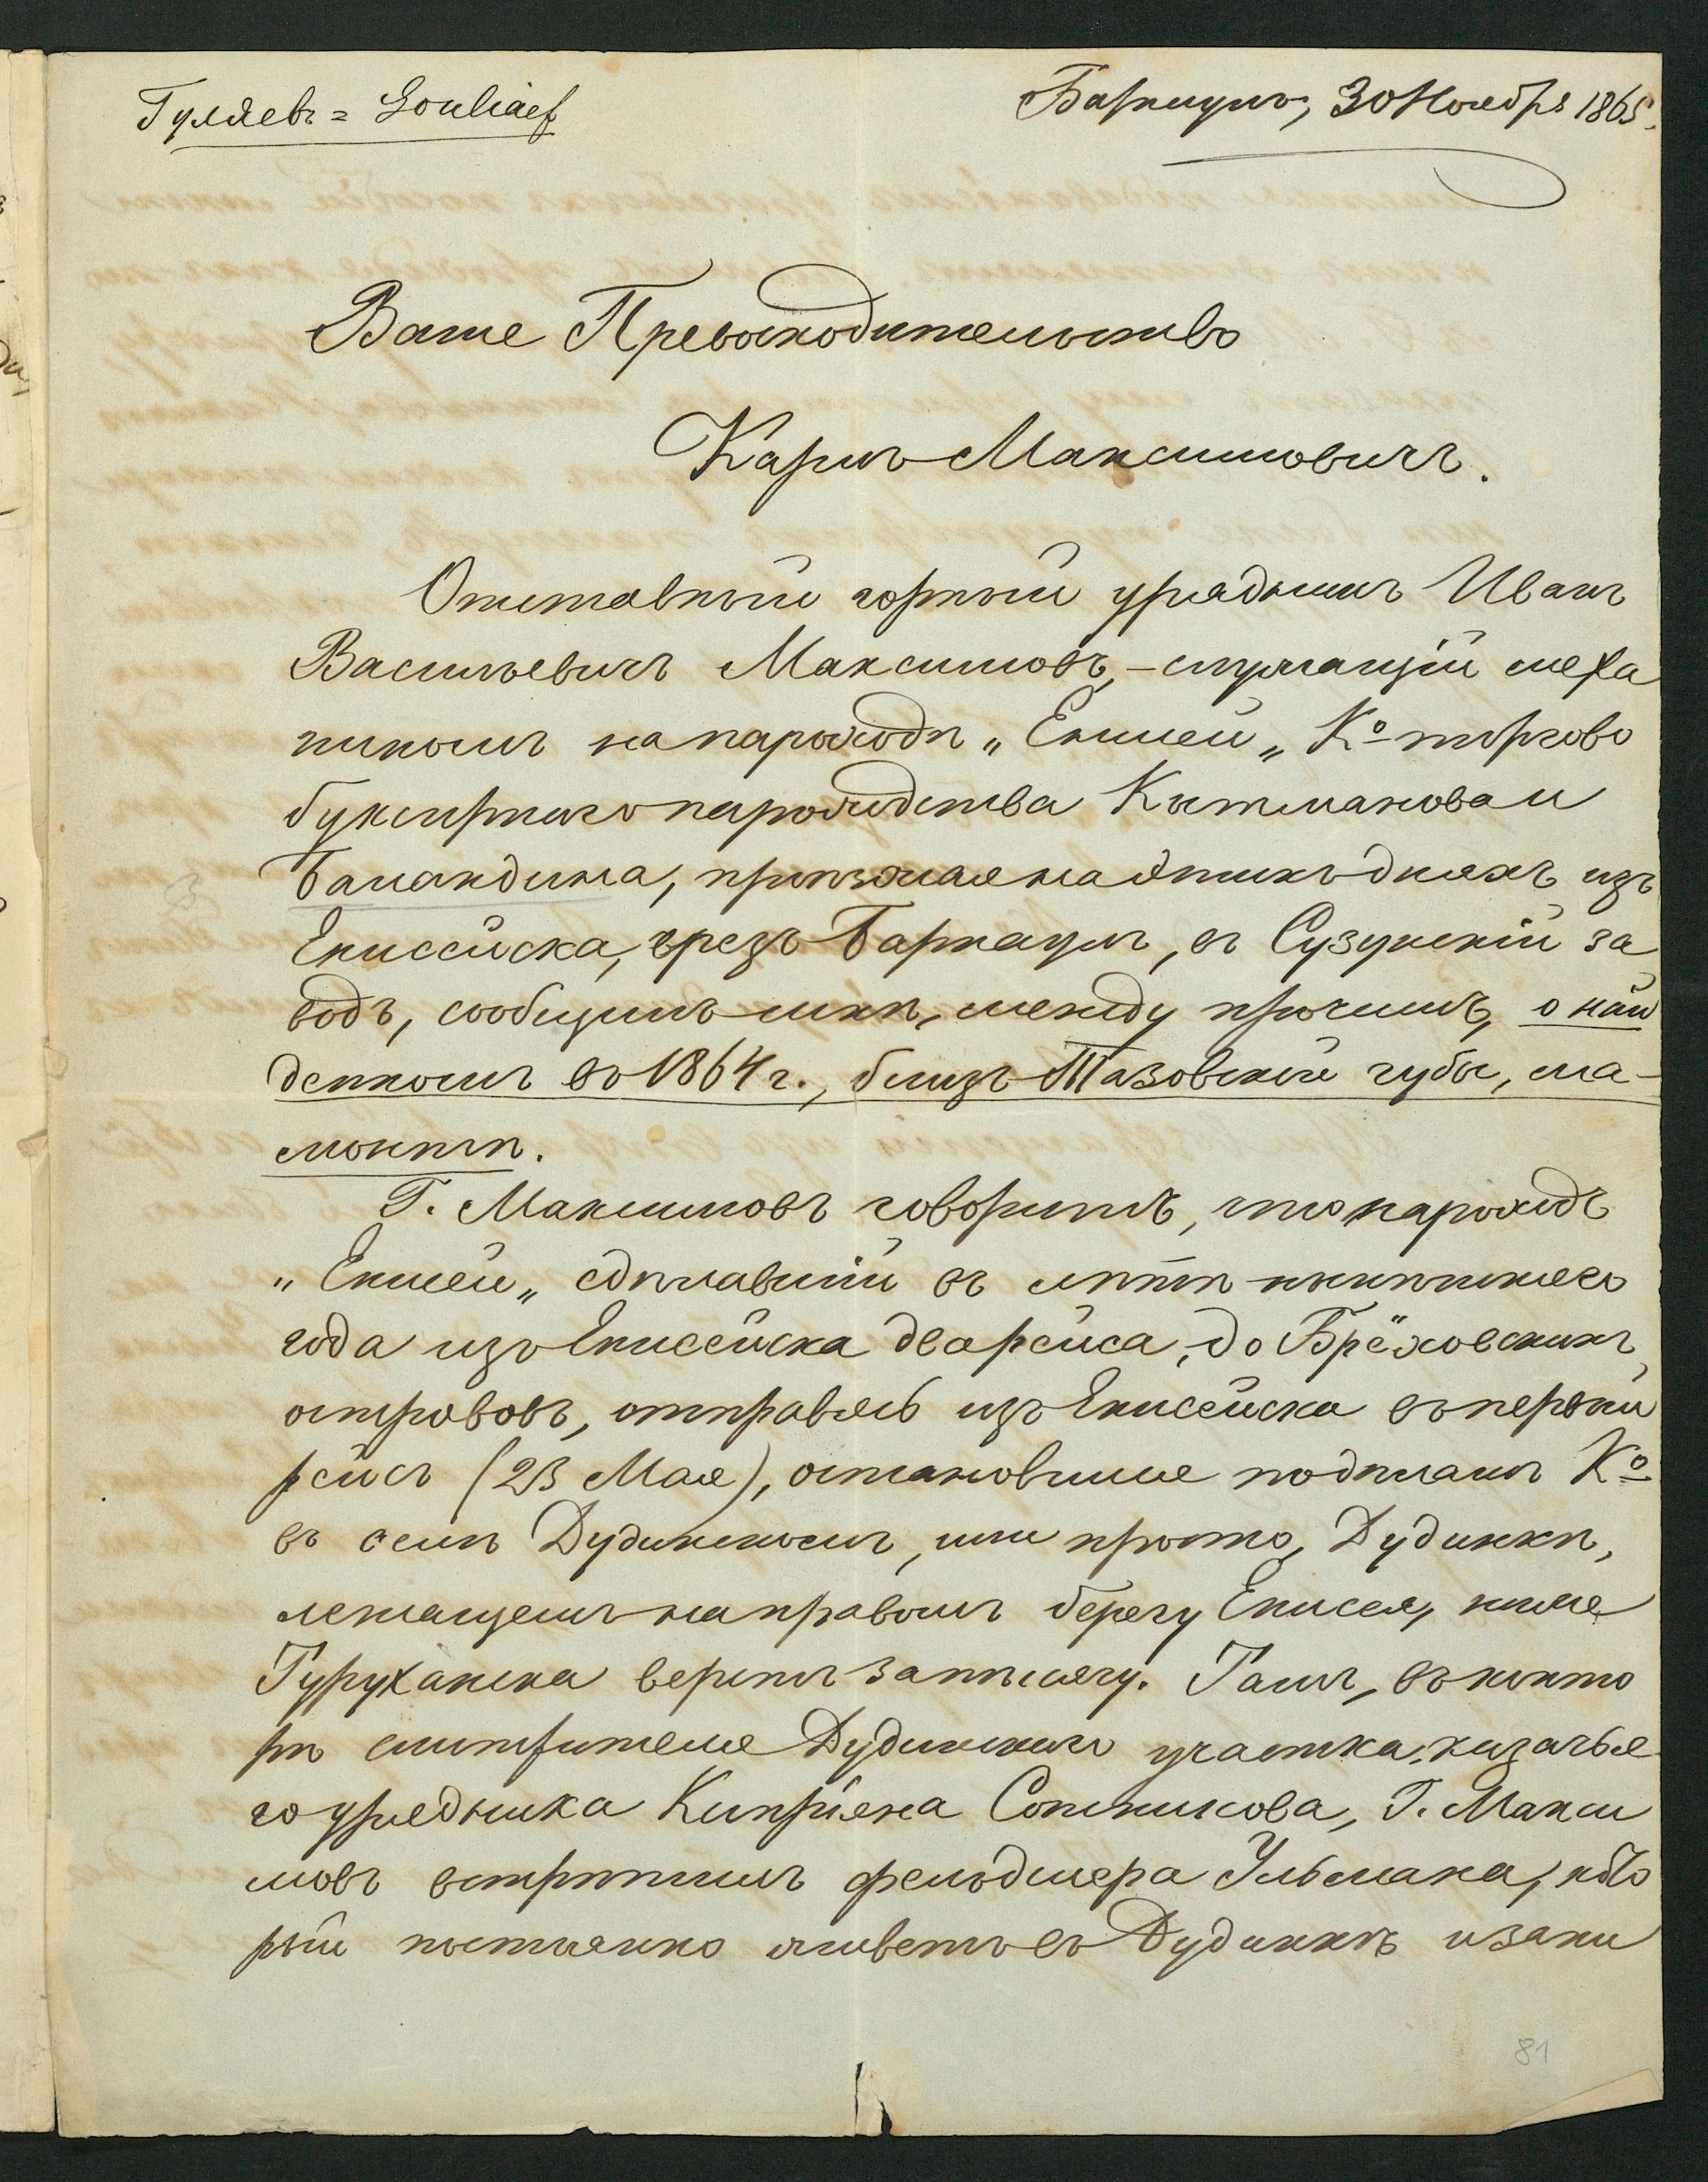 Гуляевъ = Gouliaef
Барнаулъ, 30 Ноября 1865.
Ваше Превосходительство
Карлъ Максимовичъ.
Отставный горный урядникъ Иванъ
Васильевичъ Максимовъ, – служащій меха
никомъ на пароходѣ „Енисей„ Кº торгово
буксирнаго пароходства Кытманова и
Баландина, проѣзжая на этихъ дняхъ изъ
Енисейска, чрезъ Барнаулъ, въ Сузунскій за
водъ, сообщилъ мнѣ, между прочимъ, о най
денномъ въ 1864 г., близъ Тазовской губы, ма-
монтѣ.
Г. Максимовъ говоритъ, что пароходъ
„Енисей„ сдѣлавшій въ лѣтѣ нынѣшняго
года изъ Енисейска два рейса, до Брёховскихъ
острововъ, отправясь изъ Енисейска въ первый
рейсъ (23 Мая), остановился подплылъ Кº
въ селѣ Дудинскомъ, или просто, Дудинкѣ,
лежащемъ на правомъ берегу Енисея, ниже
Туруханска верстъ за тысячу. Тамъ, въ конто
рѣ смотрителя Дудинскаго участка, казачья
го урядника Кипріяна Сотникова, Г. Макси
мовъ встрѣтилъ фельдшера Ульмана, кото
рый постоянно живетъ въ Дудинкѣ и зани
81